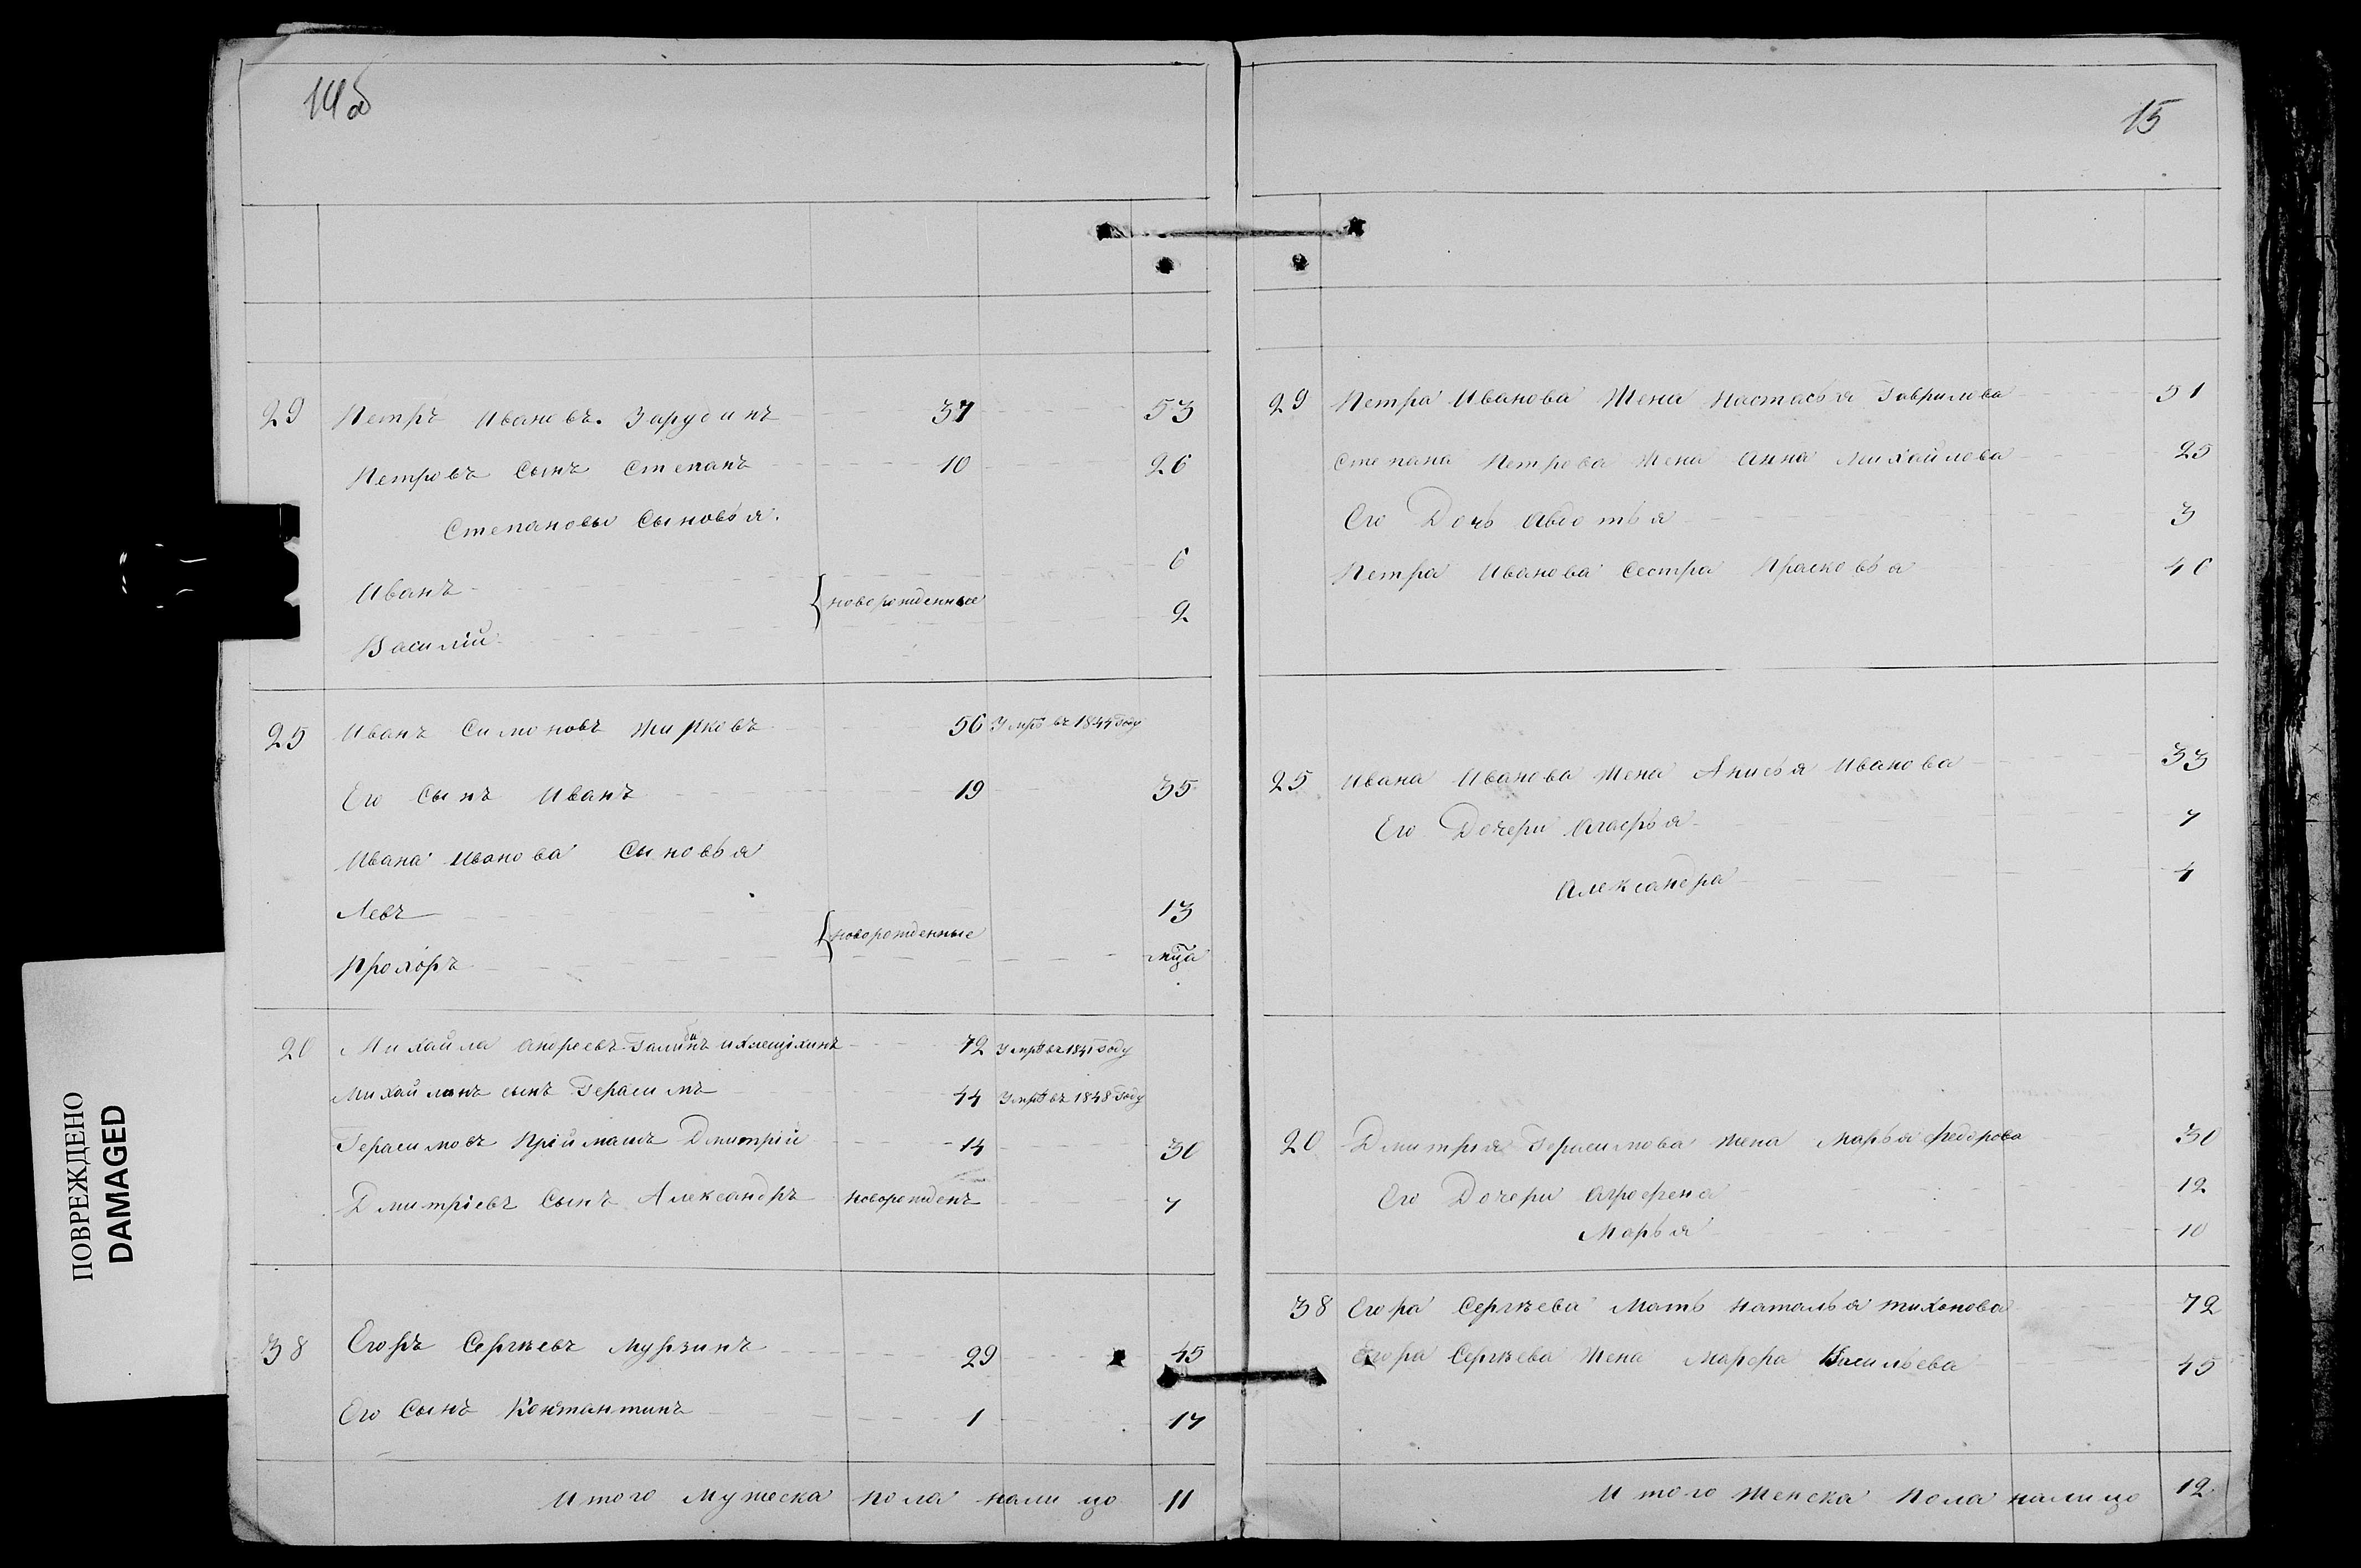 14об
29 Петръ Ивановъ. Зарудинъ 37 53
Петровъ Сынъ Степанъ 10 26
Степановы Сыновья.
Иванъ 6
{новорожденные
Василій 2
25 Иванъ Симоновъ Жирковъ 56 Умръ въ 1844 году
Его Сынъ Иванъ 19 35
Ивана Иванова Сыновья
Левъ 13
{новорожденные
Прохоръ мца
20 Михайла Андреевъ 72 Умръ въ 1841 году
Михайловъ сынъ Герасимъ 44 Умръ въ 1848 году
Герасимовъ Пріймашъ Дмитрій 14 30
Дмитріевъ Сынъ Александръ новорожденъ 7
38 Егоръ Сергѣевъ Мурзинъ 29 45
Его Сынъ Константинъ 1 17
Итого Мужеска пола налицо 11
15
29 Петра Иванова Жена Настасья Гаврилова 51
Степана Петрова Жена Анна Михайлова 25
Его Дочь Авдотья 3
Петра Иванова Сестра Прасковья 40
25 Ивана Иванова Жена Анисья Иванова 33
Его Дочери Агафья 7
Александра 4
20 Дмитрія Герасимова жена Марья Федорова 30
Его Дочери Аграфена 12
Марья 10
38 Егора Сергѣева Мать Наталья Тихонова 72
Егора Сергѣева Жена Марфа Васильева 45
Итого Женска Пола налицо 12
ПОВРЕЖДЕНО
DAMAGED